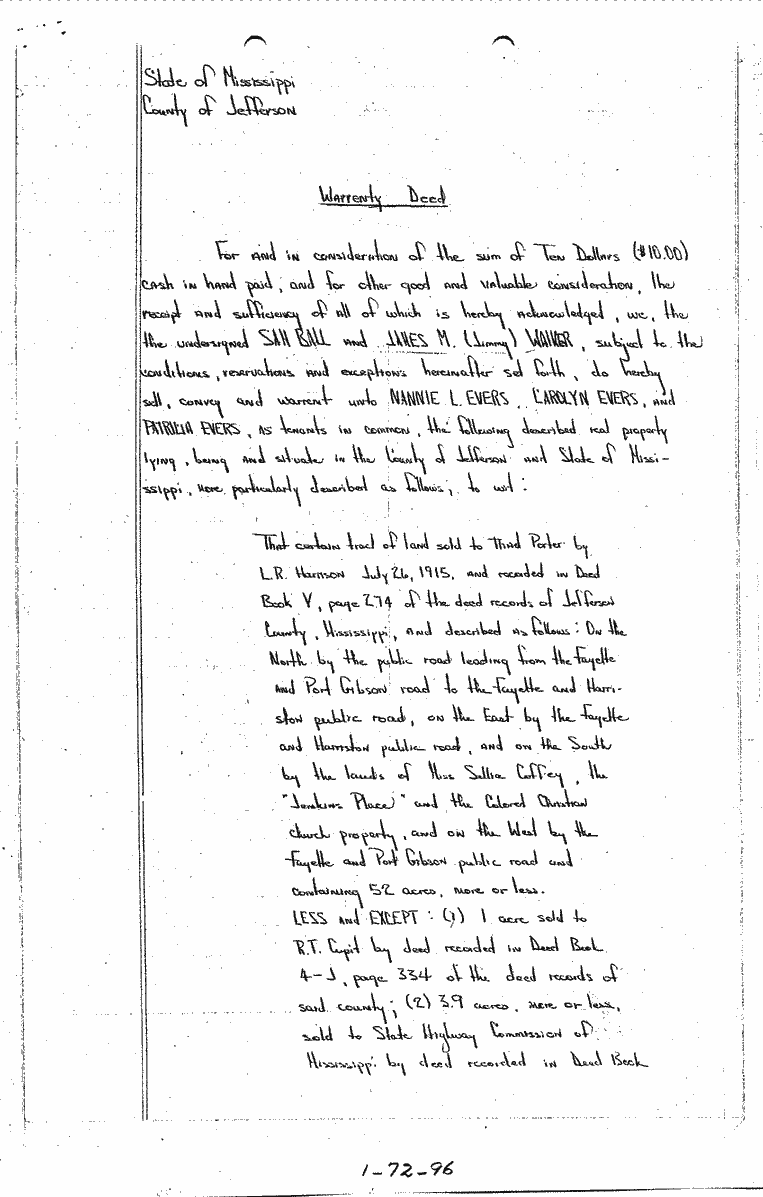 State of Mississippi
County of Jefferson
Warrenty Deed
For and in consideration of the sum of Ten Dollars ($10.00)
cash in hand paid, and for other good and valuable consideration, the
receipt and sufficiency of all of which is hereby acknowledged, we, the
the undersigned SAM BALL and JAMES M. (Jimmy) WALKER, subject to the
conditions, reservations and exceptions hereinafter set forth, do hereby
sell, convey and warrent unto NANNIE L. EVERS, CAROLYN EVERS, and
PATRICIA EVERS, as tenants in common, the following described real property
lying, being and situate in the County of Jefferson and State of Missi-
ssippi, more particularly described as follows, to wit:
That certain tract of land sold to Thad Porter by
L.R. Harrison July 26, 1915, and recorded in Deed
Book V, page 274 of the deed records of Jefferson
County, Mississippi, and described as follows: On the
North by the public road leading from the Fayette
and Port Gibson road to the Fayette and Harri-
ston public road, on the East by the Fayette
and Harriston public road, and on the South
by the lands of Miss Sallie Coffey, the
"Jenkins Place" and the Colored Christian
church property, and on the West by the
Fayette and Port Gibson public road and
containing 52 acres, more or less.
LESS and EXCEPT: (1) 1 acre sold to
R.T. Cupit by deed recorded in Deed Book
4-J, page 334 of the deed records of
said county; (2) 3.9 acres, more or less,
sold to State Highway Commission of
Mississippi by deed recorded in Deed Book
1-72-96